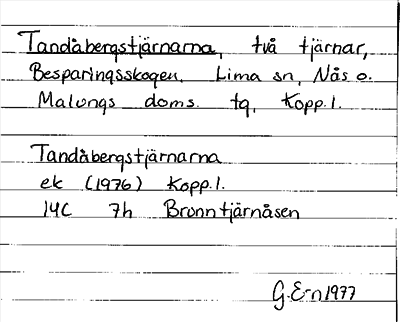 Tandåbergstjärnarna, två tjärnar,
Besparingsskogen, Lima sn, Nås o.
Malungs doms. tg, Kopp.l.
Tandåbergstjärnarna
ek (1976) Kopp.l.
14C 7h Bronntjärnåsen
G.E-n 1977